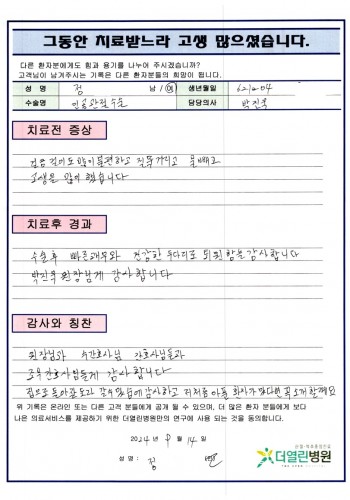 그동안 치료받느라 고생 많으셨습니다.
다른 환자분에게도 힘과 용기를 나누어 주시겠습니까?
고객님이 남겨주시는 기록은 다른 환자분들의 희망이 됩니다.
성 명 정 남 / 여 생년월일
수술명 인공관절수술 담당의사 박진욱
치료전 증상
걸음걸이도 많이 불편하고
고생을 많이 했습니다
치료후 경과
수술후 빠른쾌유와 건강한 두다리로 퇴원함을 감사합니다
박진욱 원장님께 감사합니다
감사와 칭찬
원장님과 수간호사님 간호사님들과
조무간호사님들께 감사합니다
감사하고 저처럼 아픈 환자가 있다면 꼭 소개할께요
위 기록은 온라인 또는 다른 고객 분들에게 공개 될 수 있으며, 더 많은 환자 분들에게 보다
나은 의료서비스를 제공하기 위한 더열린병원만의 연구에 사용 되는 것을 동의합니다.
2024 년 9 월 14 일
성 명 : 정
더열린병원